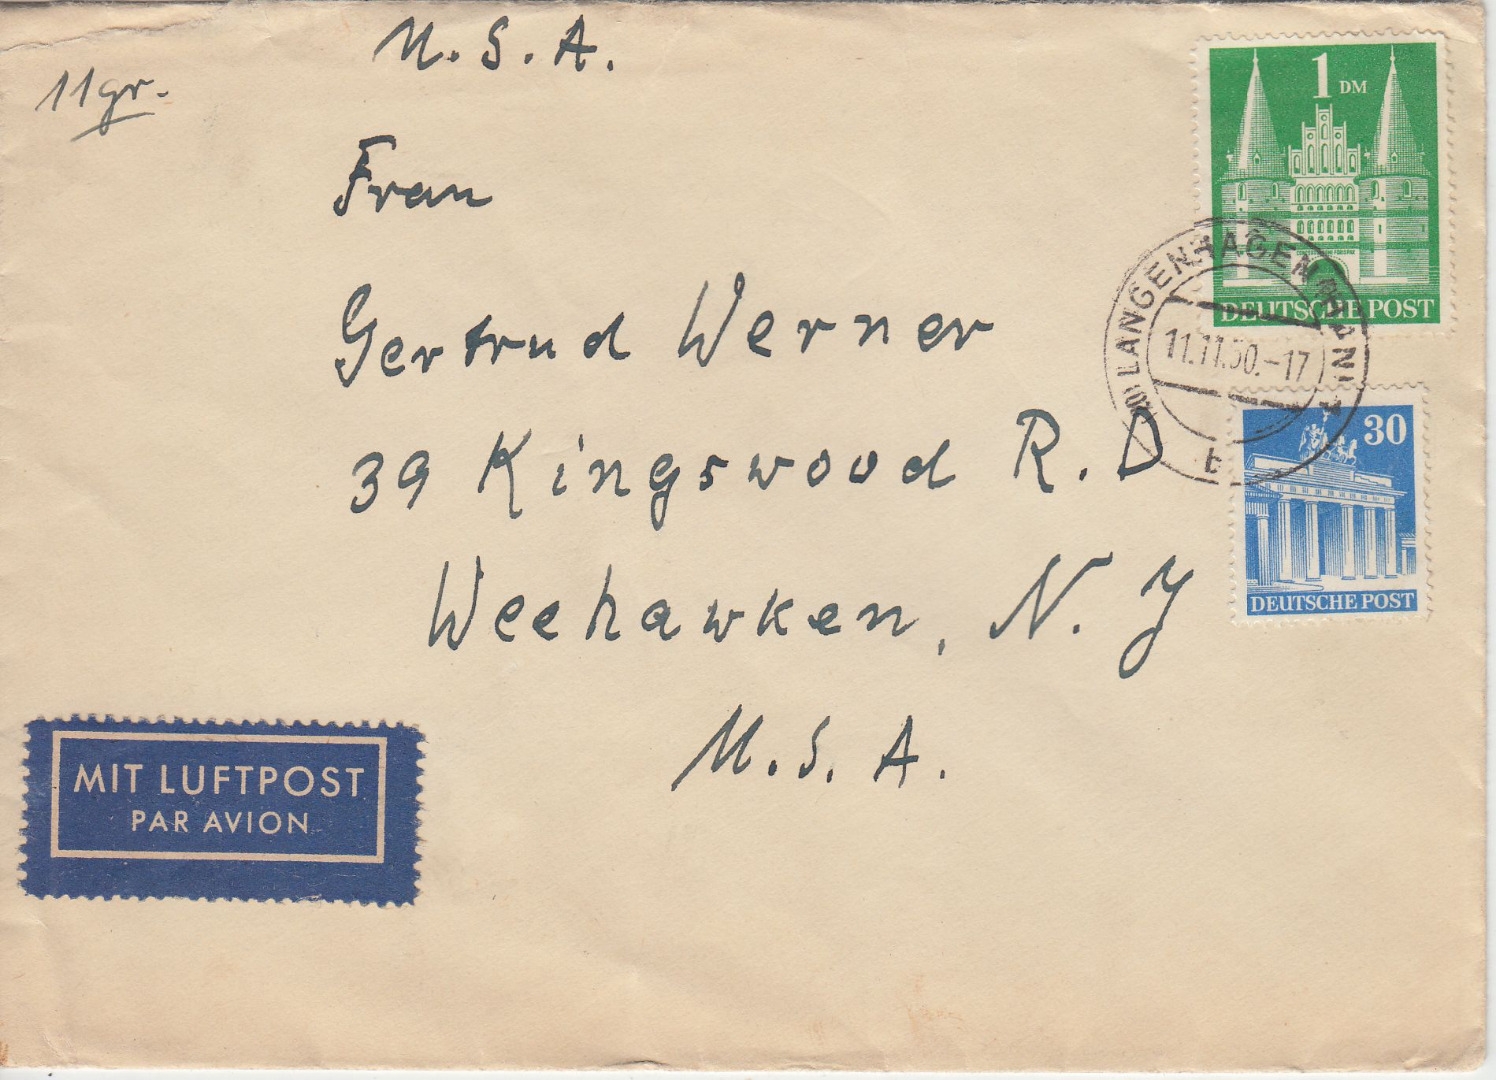 U.S.A.
11gr.
Frau
Gertrud Werner
39 Kingswood R.D
Weehawken, N.J
U.S.A.
1 DM
DEUTSCHE POST
LANGENHAGEN (HAN)
11.11.50.-17
b
30
DEUTSCHE POST
MIT LUFTPOST
PAR AVION